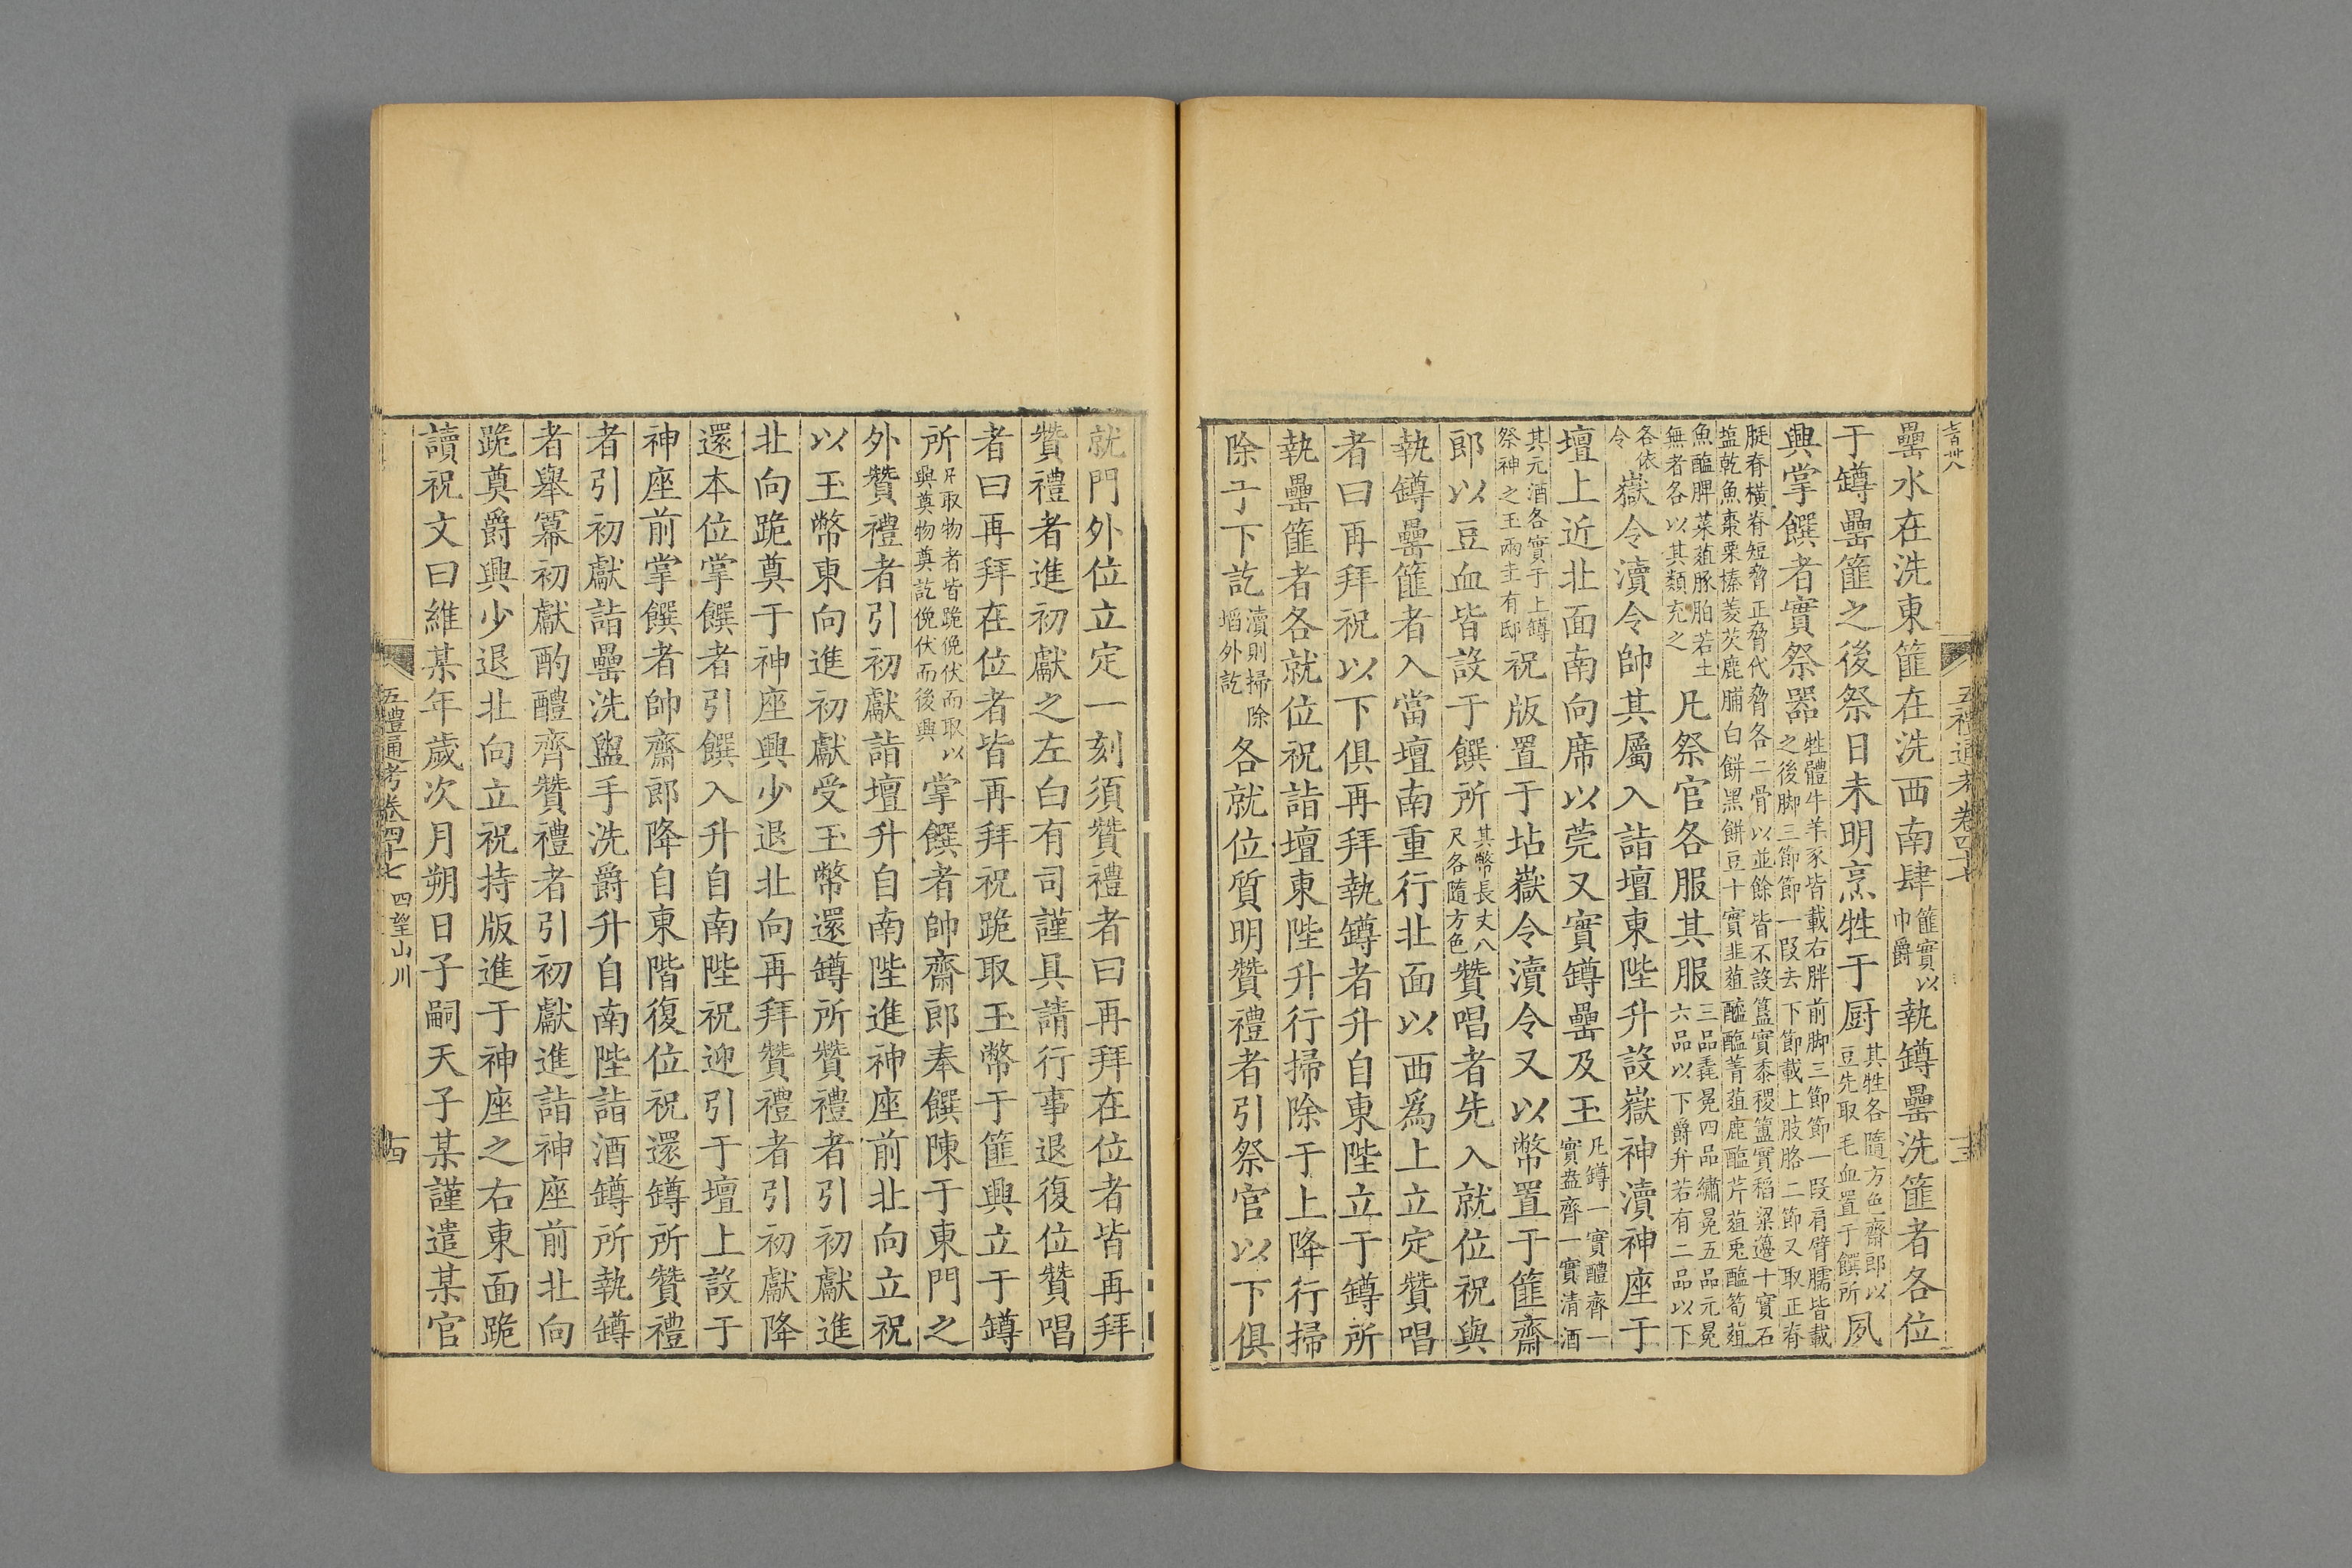 五禮通考卷四十七
十三
罍水在洗東篚在洗西南肆篚實以巾爵執罇罍洗篚者各位
于罇罍篚之後祭日未明烹牲于厨其牲各隨方色齋郎以豆先取毛血置于饌所夙
興掌饌者實祭器牲體牛羊豕皆載右胖前脚三節節一段肩臂臑皆載之後脚三節節一段去下節載上肢胳二節又取正脊
脡脊橫脊短脅正脅代脅各二骨以並餘皆不設簋實黍稷簠實稻粱籩十實石塩乾魚棗栗榛菱芡鹿脯白餅黑餅豆十實韭葅醓醢菁葅鹿醢芹葅兎醢筍葅
魚醢脾菜葅豚胉若土無者各以其類充之凡祭官各服其服三品毳冕四品繡冕五品元冕六品以下爵弁若有二品以下
各依令嶽令瀆令帥其屬入詣壇東陛升設嶽神瀆神座于
壇上近北面南向席以莞又實罇罍及玉凡罇一實醴齊一實盎齊一實清酒
其元酒各實于上罇祭神之玉兩圭有邸祝版置于坫嶽令瀆令又以幣置于篚齋
郎以豆血皆設于饌所其幣長丈八尺各隨方色贊唱者先入就位祝與
執罇罍篚者入當壇南重行北面以西爲上立定贊唱
者曰再拜祝以下俱再拜執罇者升自東陛立于罇所
執罍篚者各就位祝詣壇東陛升行掃除于上降行掃
除于下訖瀆則掃除壝外訖各就位質明贊禮者引祭官以下俱
就門外位立定一刻須贊禮者曰再拜在位者皆再拜
贊禮者進初獻之左白有司謹具請行事退復位贊唱
者曰再拜在位者皆再拜祝跪取玉幣于篚興立于罇
所凡取物者皆跪俛伏而取以興奠物奠訖俛伏而後興掌饌者帥齋郎奉饌陳于東門之
外贊禮者引初獻詣壇升自南陛進神座前北向立祝
以玉幣東向進初獻受玉幣還罇所贊禮者引初獻進
北向跪奠于神座興少退北向再拜贊禮者引初獻降
還本位掌饌者引饌入升自南陛祝迎引于壇上設于
神座前掌饌者帥齋郎降自東階復位祝還罇所贊禮
者引初獻詣罍洗盥手洗爵升自南陛詣酒罇所執罇
者舉羃初獻酌醴齊贊禮者引初獻進詣神座前北向
跪奠爵興少退北向立祝持版進于神座之右東面跪
讀祝文曰維某年歲次月朔日子嗣天子某謹遣某官
五禮通考卷四十七 四望山川
十四